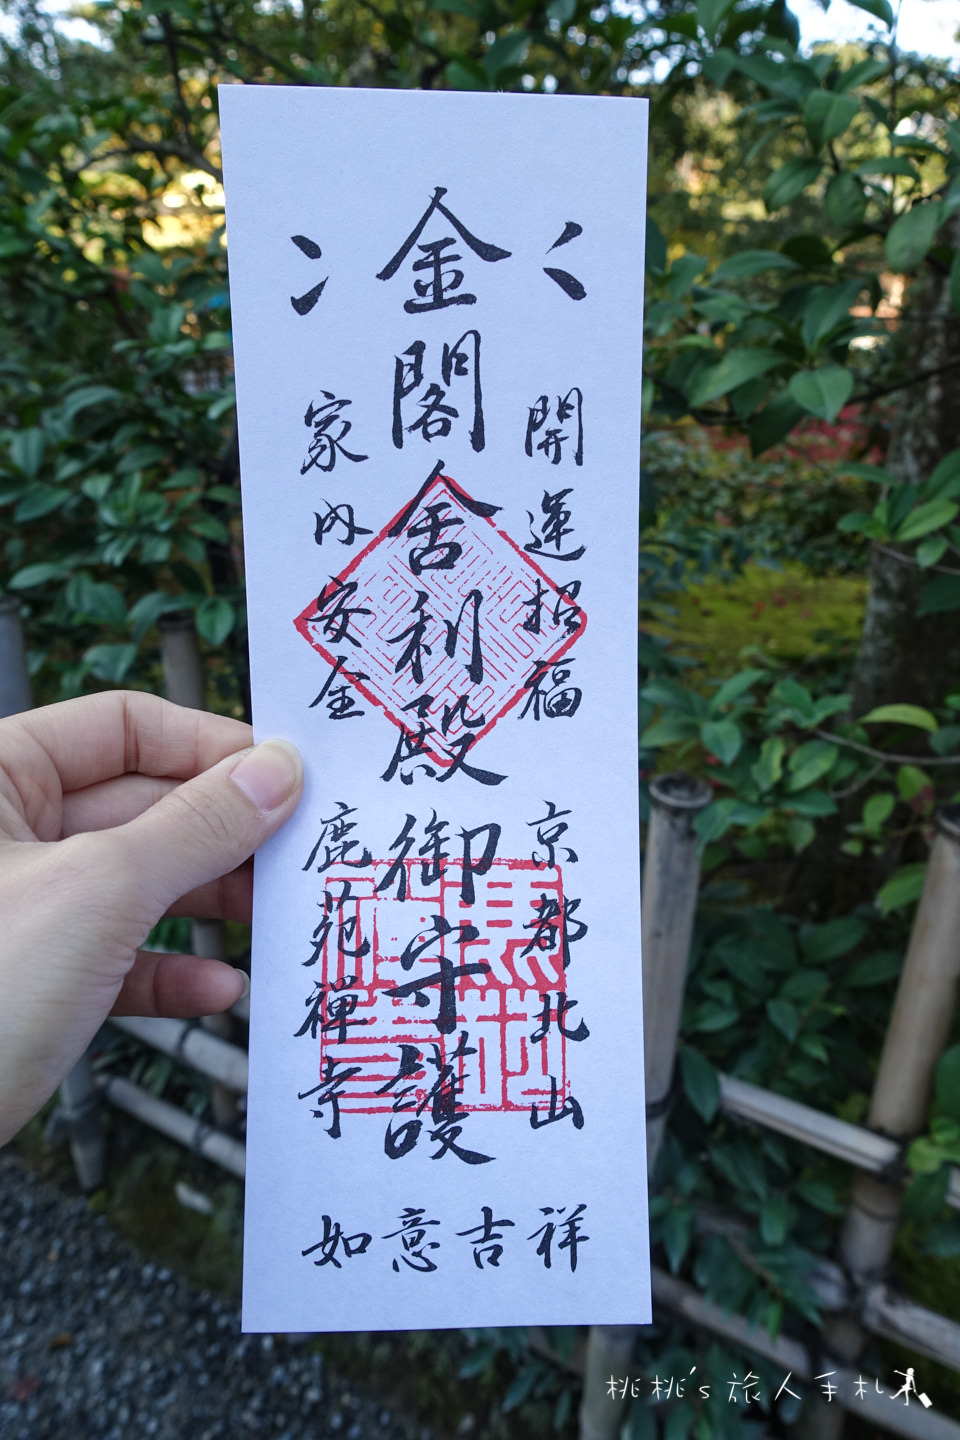 開運招福
京都北山
金閣舎利殿御守護
家内安全
鹿苑禅寺
祥吉意如
桃桃's 旅人手札